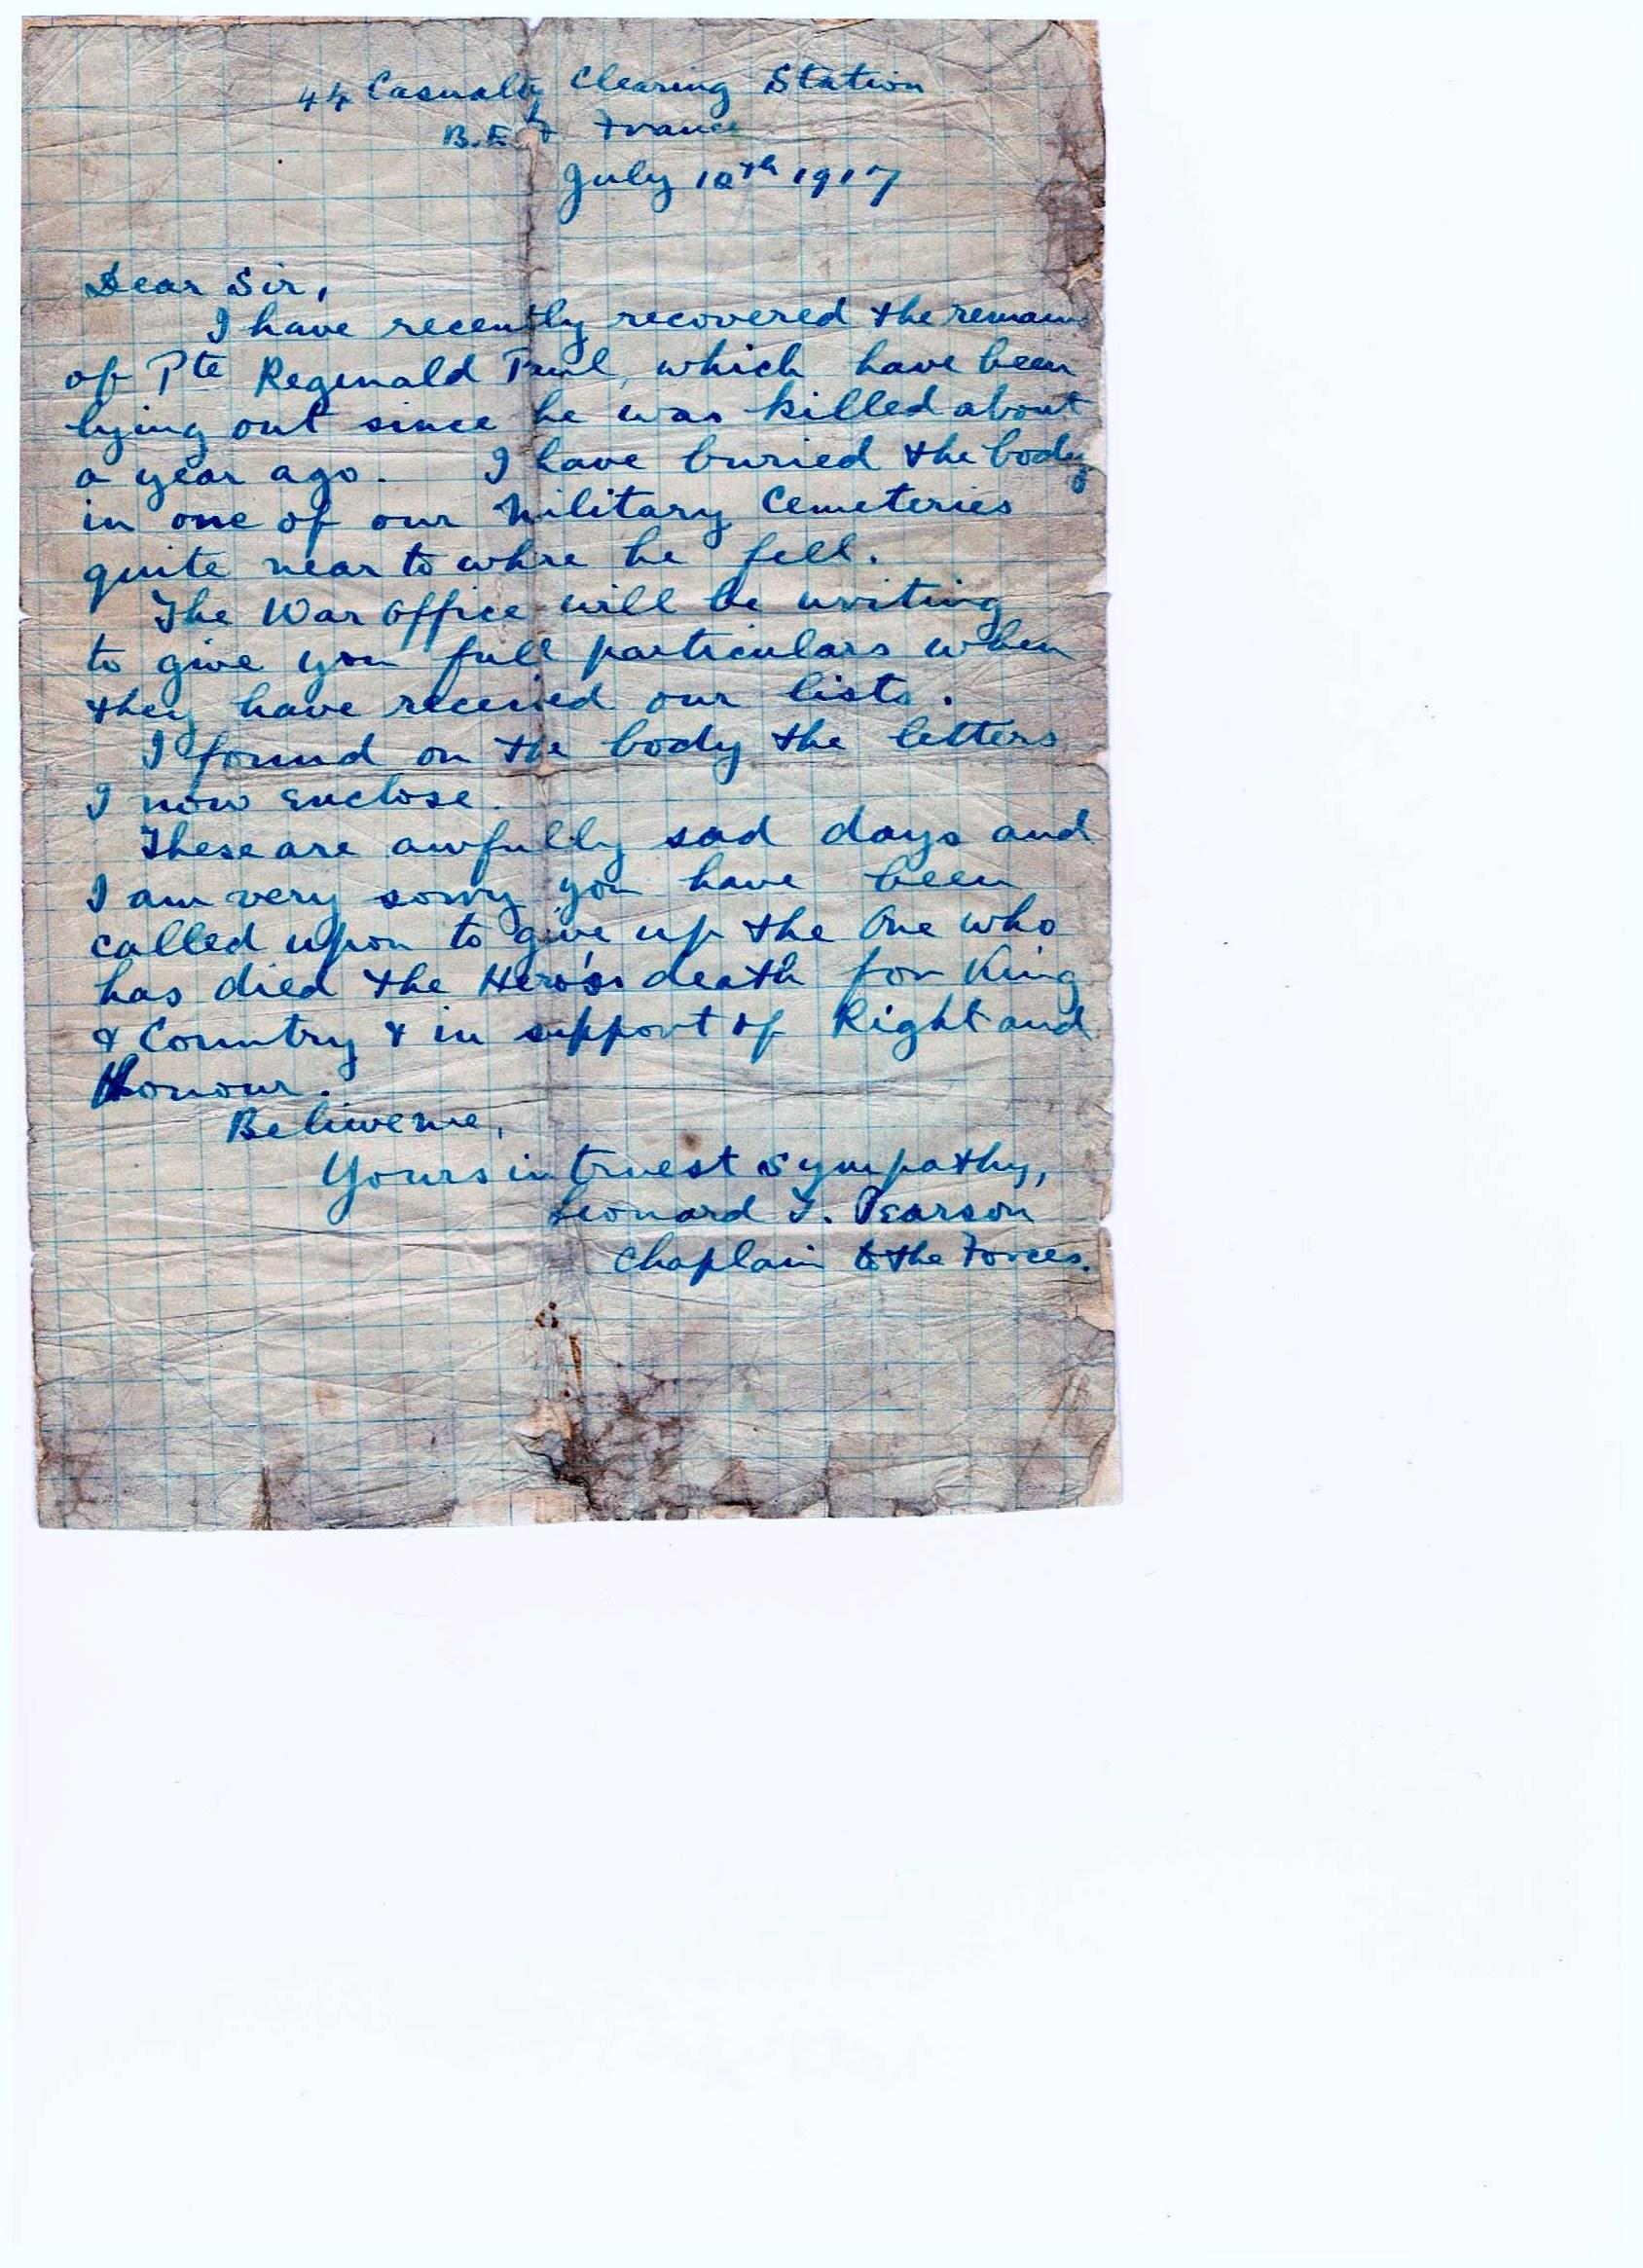 44 Casualty Clearing Station
B.E.F France
July 10th 1917
Dear Sir,
I have recently recovered the remains
of Pte Reginald Paul, which have been
lying out since he was killed about
a year ago. I have buried the body
in one of our Military Cemeteries
quite near to whre he fell.
The War Office will be writing
to give you full particulars when
they have received our lists.
I found on the body the letters
I now enclose.
These are awfully sad days and
I am very sorry you have been
called upon to give up the One who
has died the Hero's death for King
& Country & in support of Right and
Honour.
Believe me,
Yours in truest sympathy,
Leonard T. Pearson
Chaplain to the Forces.